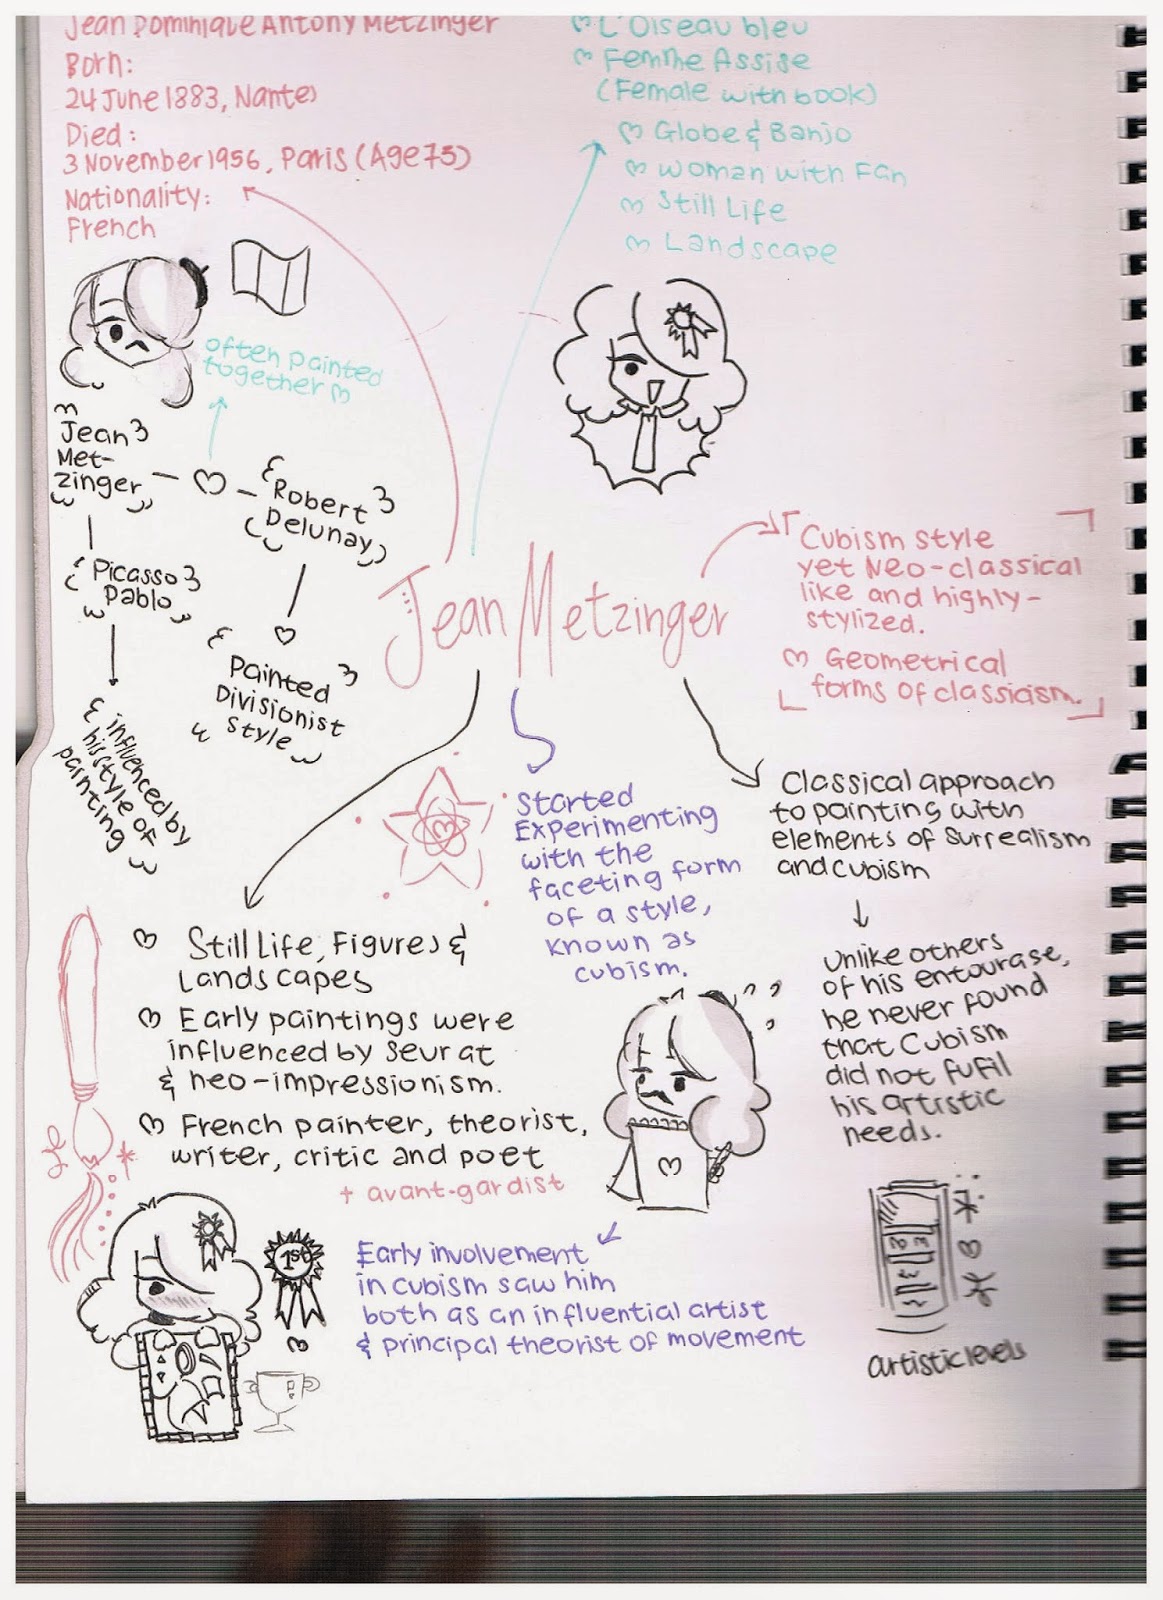 Jean Dominique Antony Metzinger
Born:
24 June 1883, Nantes
Died:
3 November 1956, Paris (Age 75)
Nationality:
French
L'Oiseau bleu
Femme Assise
(Female with book)
Globe & Banjo
Woman with Fan
Still Life
Landscape
often painted
together
Jean
Met-
zinger
Robert
Delunay
Picasso
Pablo
Painted
Divisionist
Style
influenced by
his style of
painting
Jean Metzinger
Cubism style
yet Neo-classical
like and highly-
stylized.
Geometrical
forms of classicism.
Started
Experimenting
with the
faceting form
of a style,
known as
cubism.
Classical approach
to painting with
elements of surrealism
and cubism
Unlike others
of his entourase,
he never found
that Cubism
did not fufil
his artistic
needs.
artistic levels
Still Life, Figures &
Landscapes
Early paintings were
influenced by Seurat
& neo-impressionism.
French painter, theorist,
writer, critic and poet
+ avant-gardist
1st
Early involvement
in cubism saw him
both as an influential artist
& principal theorist of movement